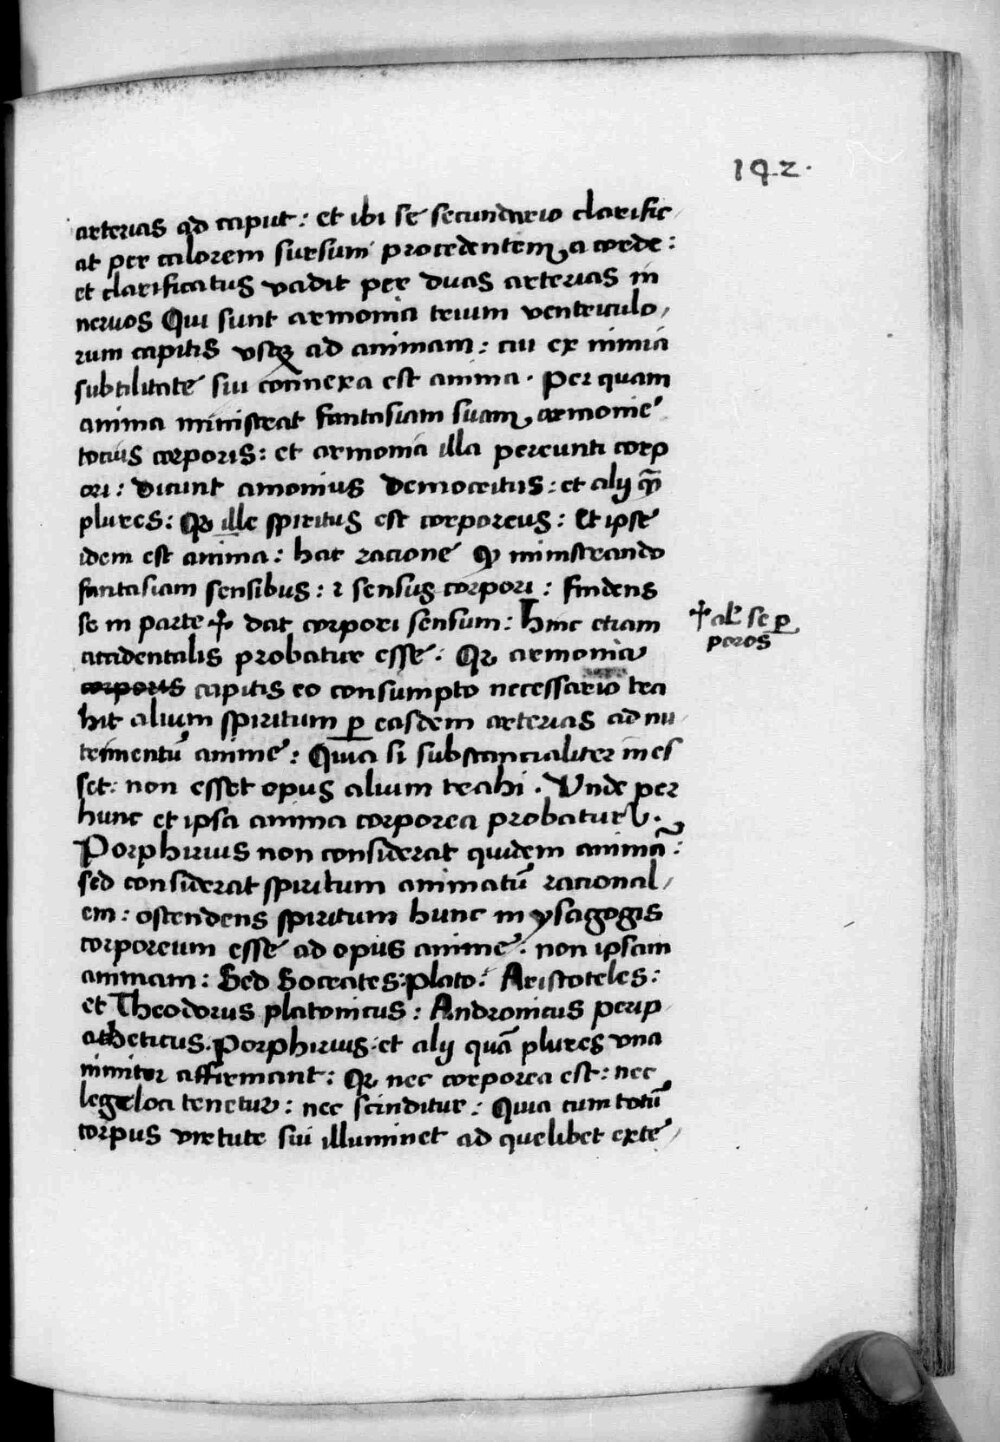 142.
arterias ad caput: et ibi se secundario clarific
at per calorem sursum procedentem a corde:
et clarificatus vadit per duas arterias in
nervos Qui sunt armonia trium ventriculo,
rum capitis vsqꝫ ad animam: cui ex nimia
subtilitate sui connexa est anima. Per quam
anima ministrat fantasiam suam armonie
totius corporis: et armonia illa pereunti corp
ori: dicunt amonius Democritus: et alij qm̄
plures: Qꝛ ille spiritus est corporeus: Et ipse
idem est anima: hac racione qꝫ ministrando
fantasiam sensibus: ⁊ sensus corpori: findens
se in parte ☩ dat corpori sensum: Hinc etiam
accidentalis probatur esse. Qꝛ armonia
corporis capitis eo consumpto necessario tra
hit alium spiritum ꝑ easdem arterias ad nu
trimentū anime: Quia si substancialiter ines
set: non esset opus alium trahi. Vnde per
hunc et ipsa anima corporea probatur.
Porphirius non considerat quidem animā:
sed considerat spiritum animatū racional,
em: ostendens spiritum hunc in ysagogis
corporeum esse ad opus anime: non ipsam
animam: Sed Socrates: Plato: Aristoteles:
et Theodorus platonicus: Andronicus perip
atheticus. Porphirius: et alij quā plures vna
nimiter affirmant: Qꝛ nec corporea est: nec
lege loci tenetur: nec scinditur: Quia cum totū
corpus virtute sui illuminet ad quelibet exte,
☩ al' se ꝑ
poros